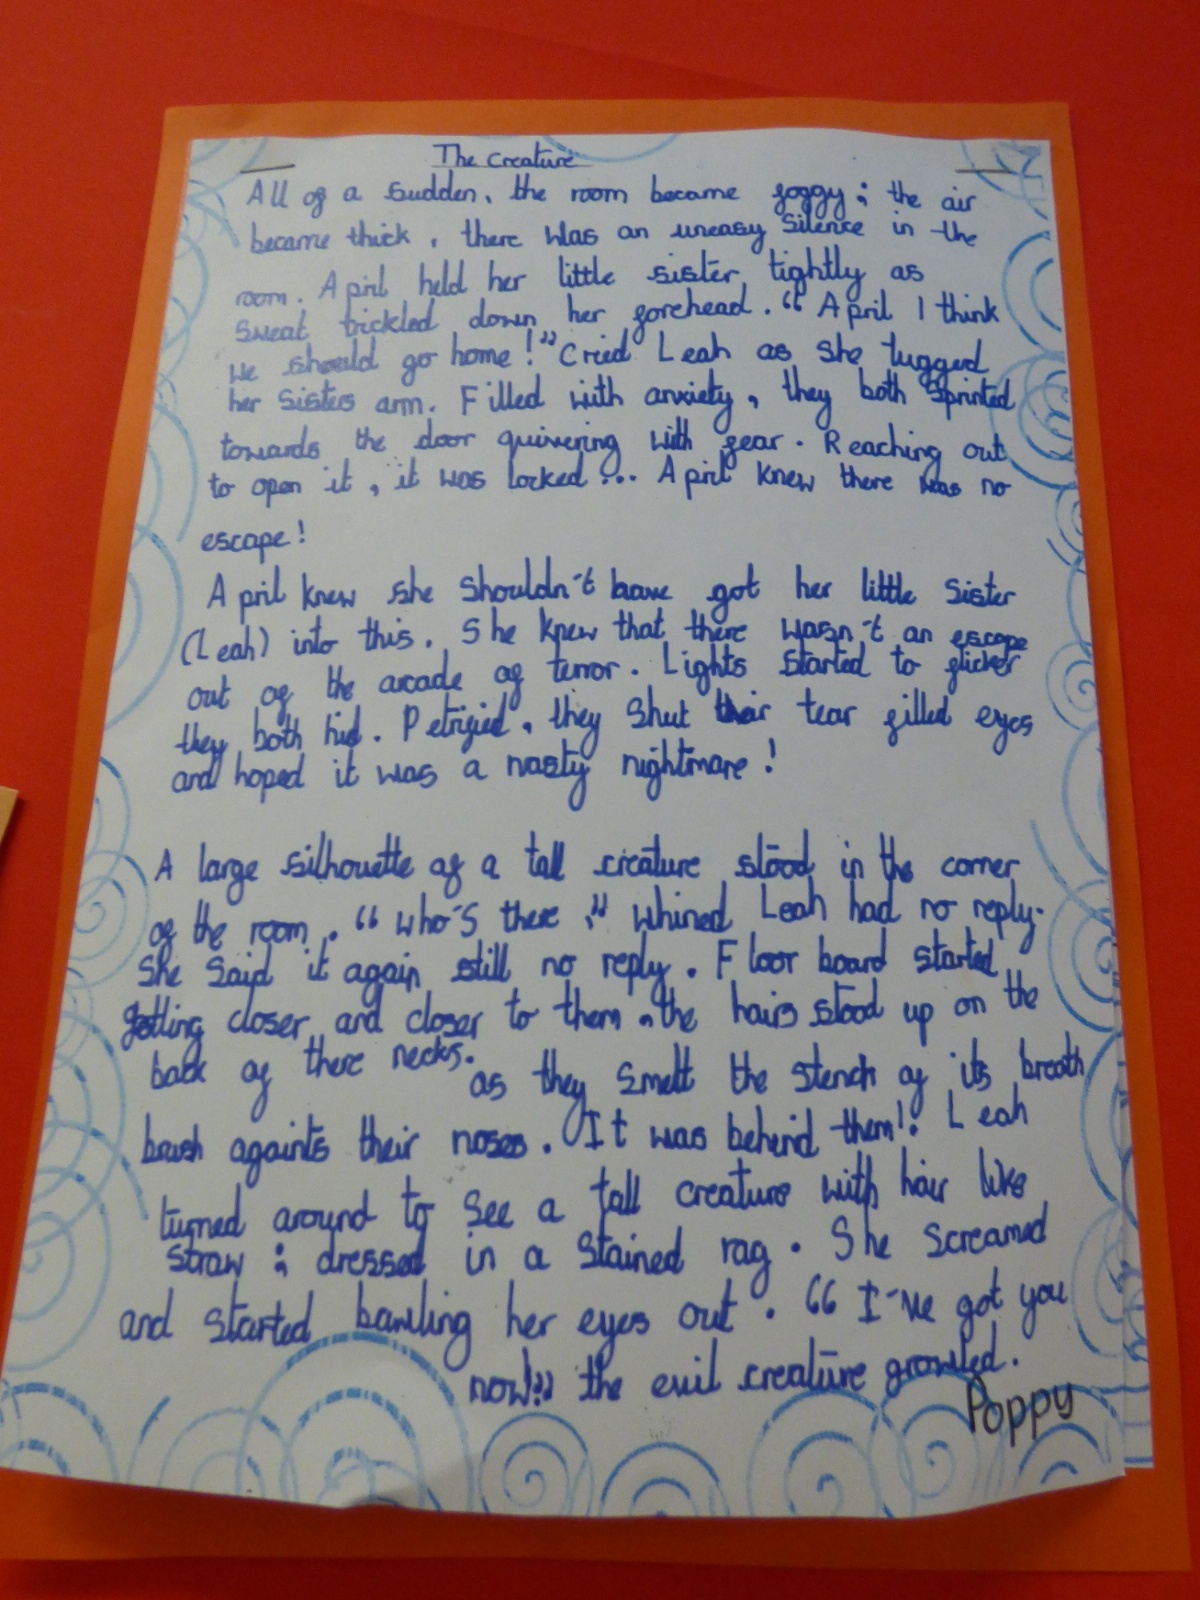 The Creature
All of a sudden, the room became foggy; the air
became thick, there was an uneasy silence in the
room. April held her little sister tightly as
sweat trickled down her forehead. "April I think
we should go home!" cried Leah as she tugged
her sisters arm. Filled with anxiety, they both sprinted
towards the door quivering with fear. Reaching out
to open it, it was locked... April knew there was no
escape!
April knew she shouldn't have got her little sister
(Leah) into this. She knew that there wasn't an escape
out of the arcade of terror. Lights started to flicker
they both hid. Petrified, they shut their tear filled eyes
and hoped it was a nasty nightmare!
A large silhouette of a tall creature stood in the corner
of the room. "who's there," whined Leah had no reply.
She said it again still no reply. Floor board started
getting closer and closer to them, the hairs stood up on the
back of there necks.
as they smelt the stench of its breath
brush againts their noses. It was behind them!. Leah
turned around to see a tall creature with hair like
straw; dressed in a stained rag. She screamed
and started bawling her eyes out. "I've got you
now!" the evil creature growled.
Poppy